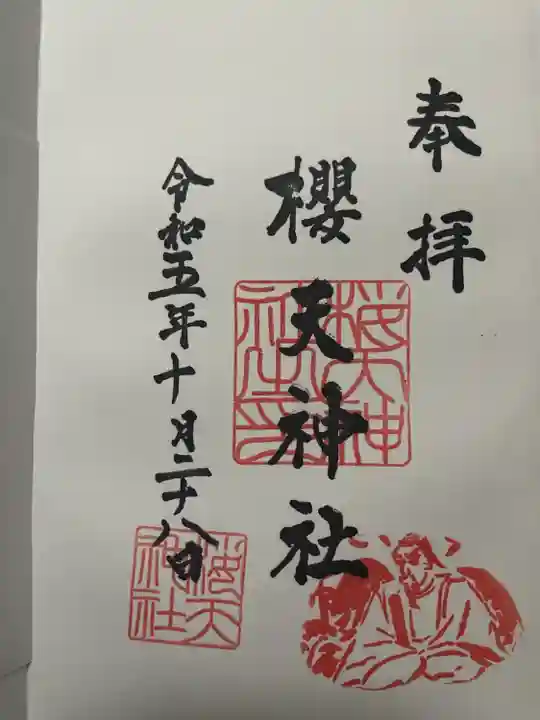 奉拝
櫻天神社
桜天神社之印
令和五年十月二十八日
桜天神社